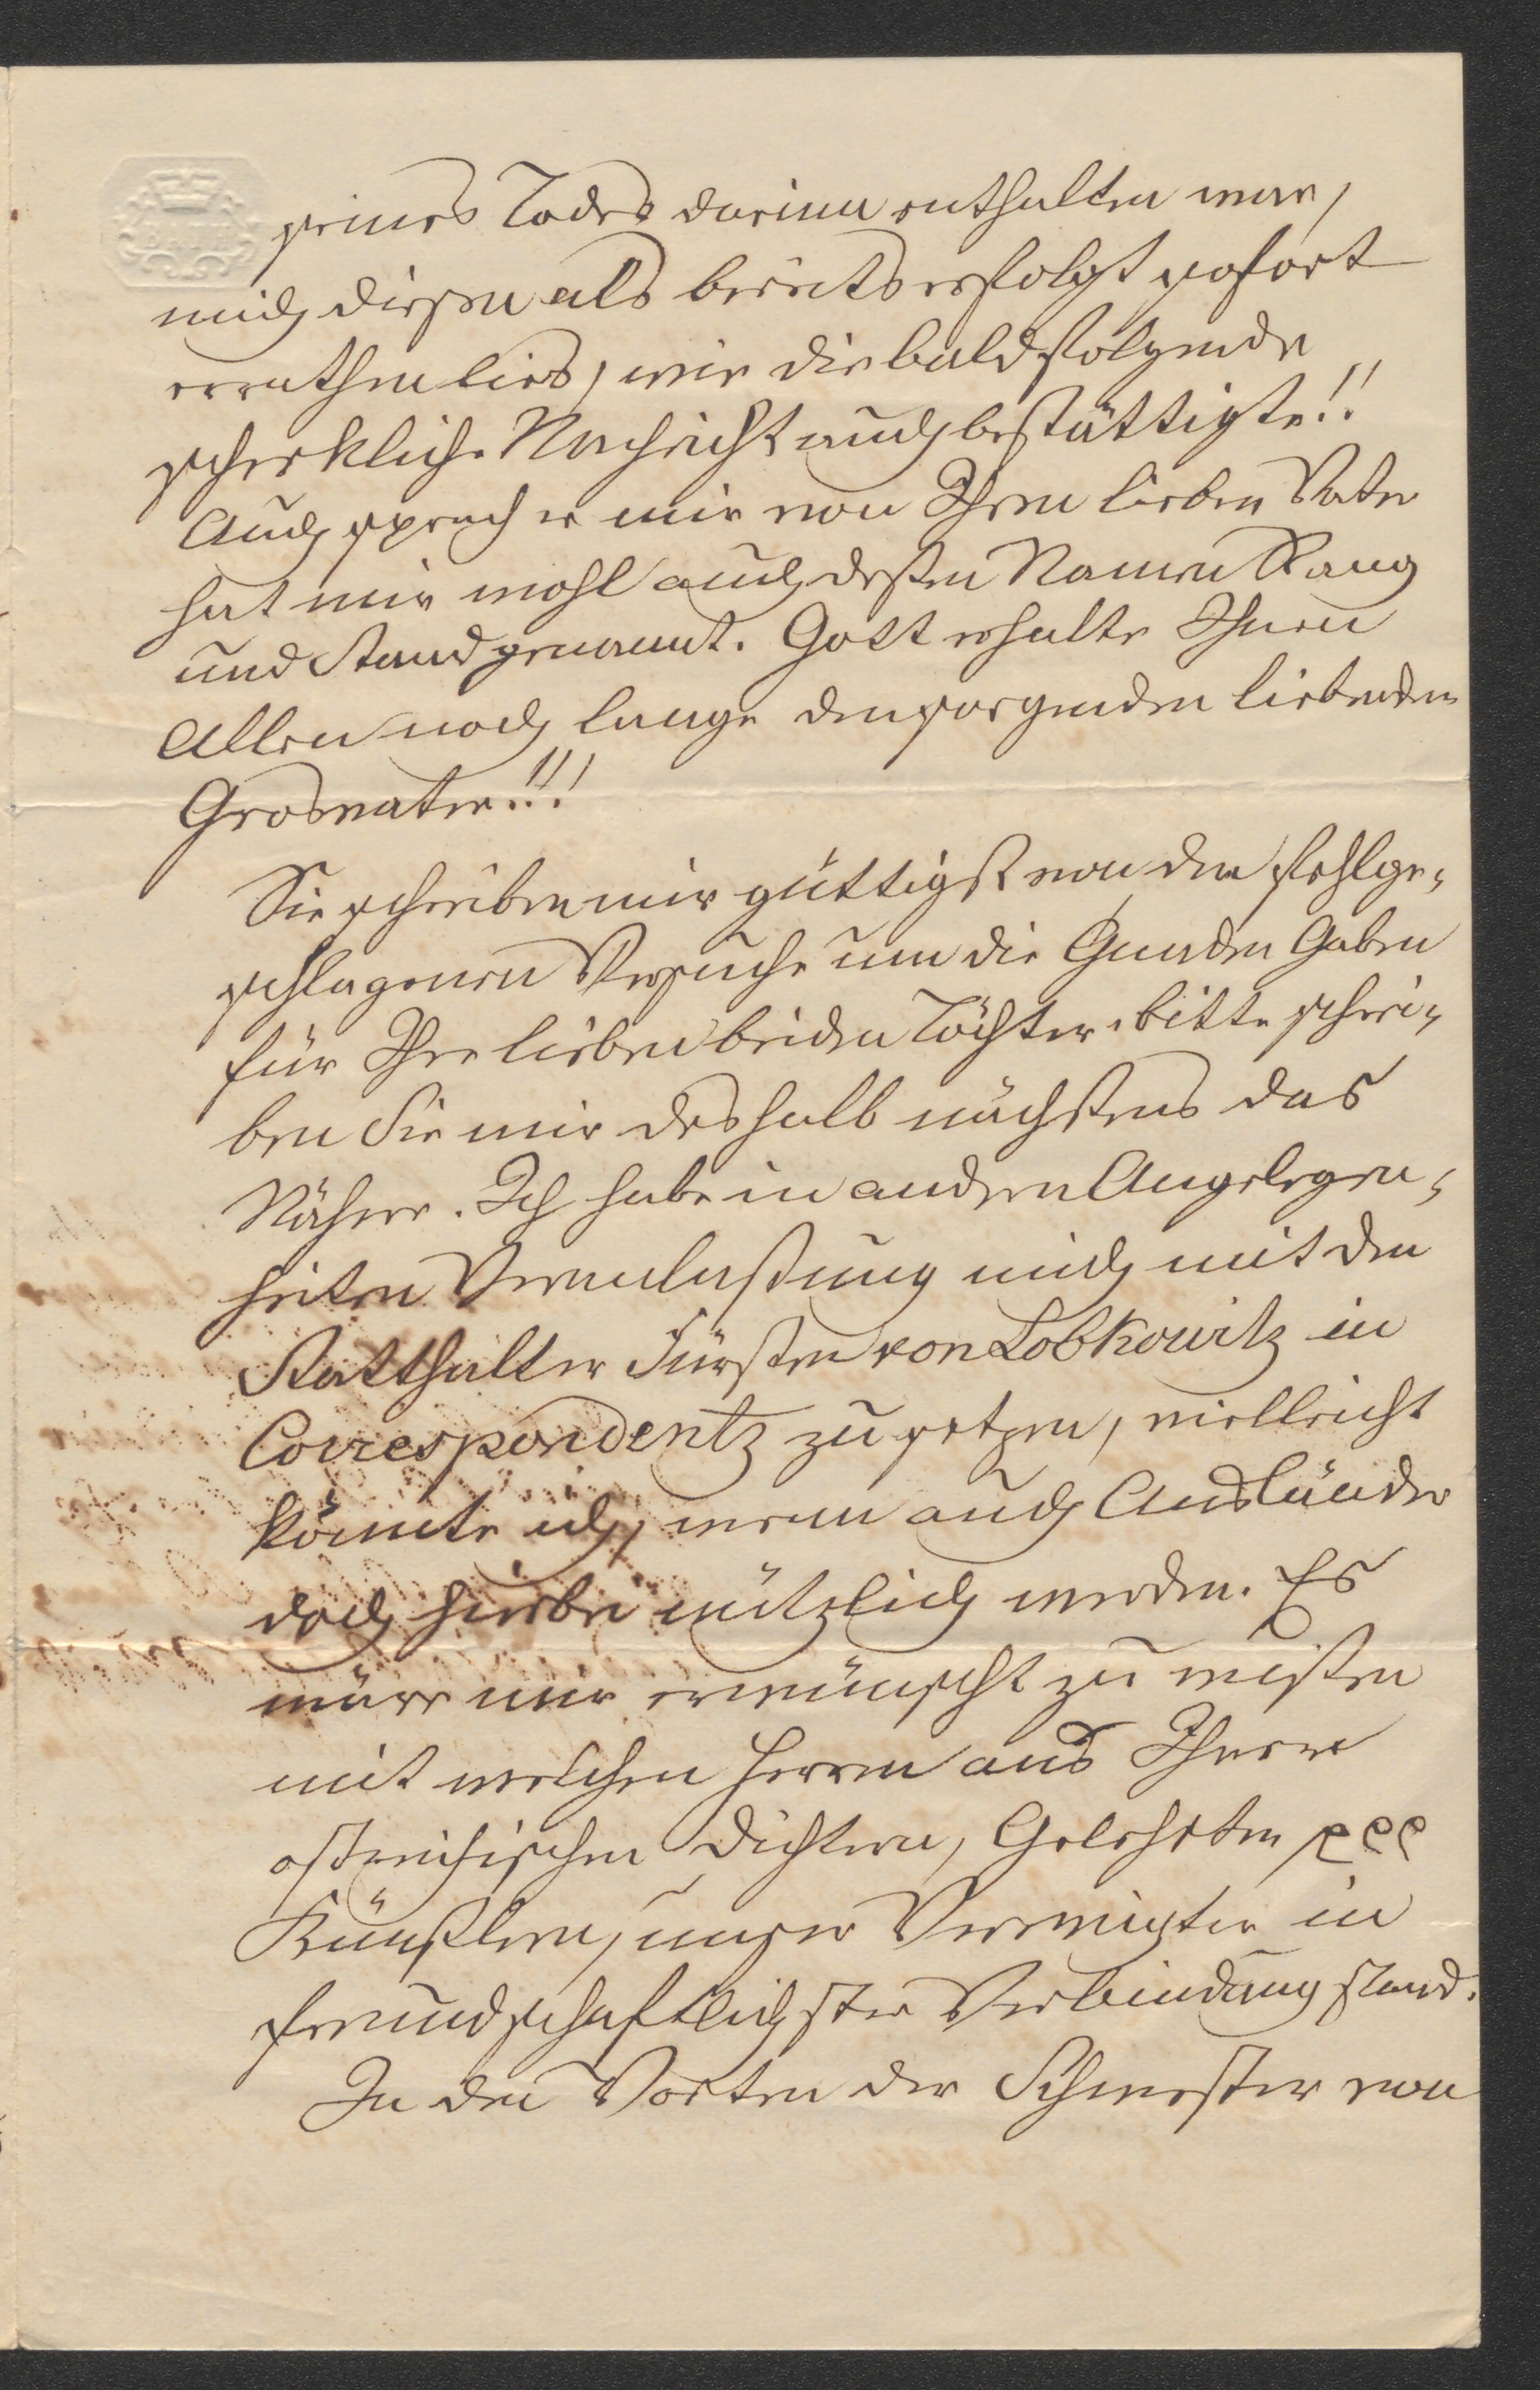 seines Todes darinn enthalten war,
mich diesen als bereits erfolgt sofort
errathen lies, wie die bald folgende
schrekliche Nachricht auch bestättigte!!
Auch sprach er mir von Ihren lieben Vater
hat mir wohl auch deßen Namen Rang
und Stand genannt. Gott erhalte Ihnen
Allen noch lange den sorgenden liebenden
Grosvater!!!
Sie schreiben mir güttigst von den fehlge-
schlagenen Versuche um die Gnaden Gaben
für Ihre lieben beiden Töchter, bitte schrei-
ben Sie mir deshalb nächstens das
Nähere. Ich habe in andern Angelegen-
heiten Veranlaßung mich mit den
Statthalter Fürsten von Lobkowitz in
Correspondentz zu setzen, vielleicht
könnte ich, wenn auch Ausländer
doch hierbei nützlich werden. Es
wäre mir erwünscht zu wißen
mit welchen Herren aus Ihren
östreichischen Dichtern, Gelehrten
Künstlern, unser Verewigter in
freundschaftlichster Verbindung stand.
In den Worten der Schwester von